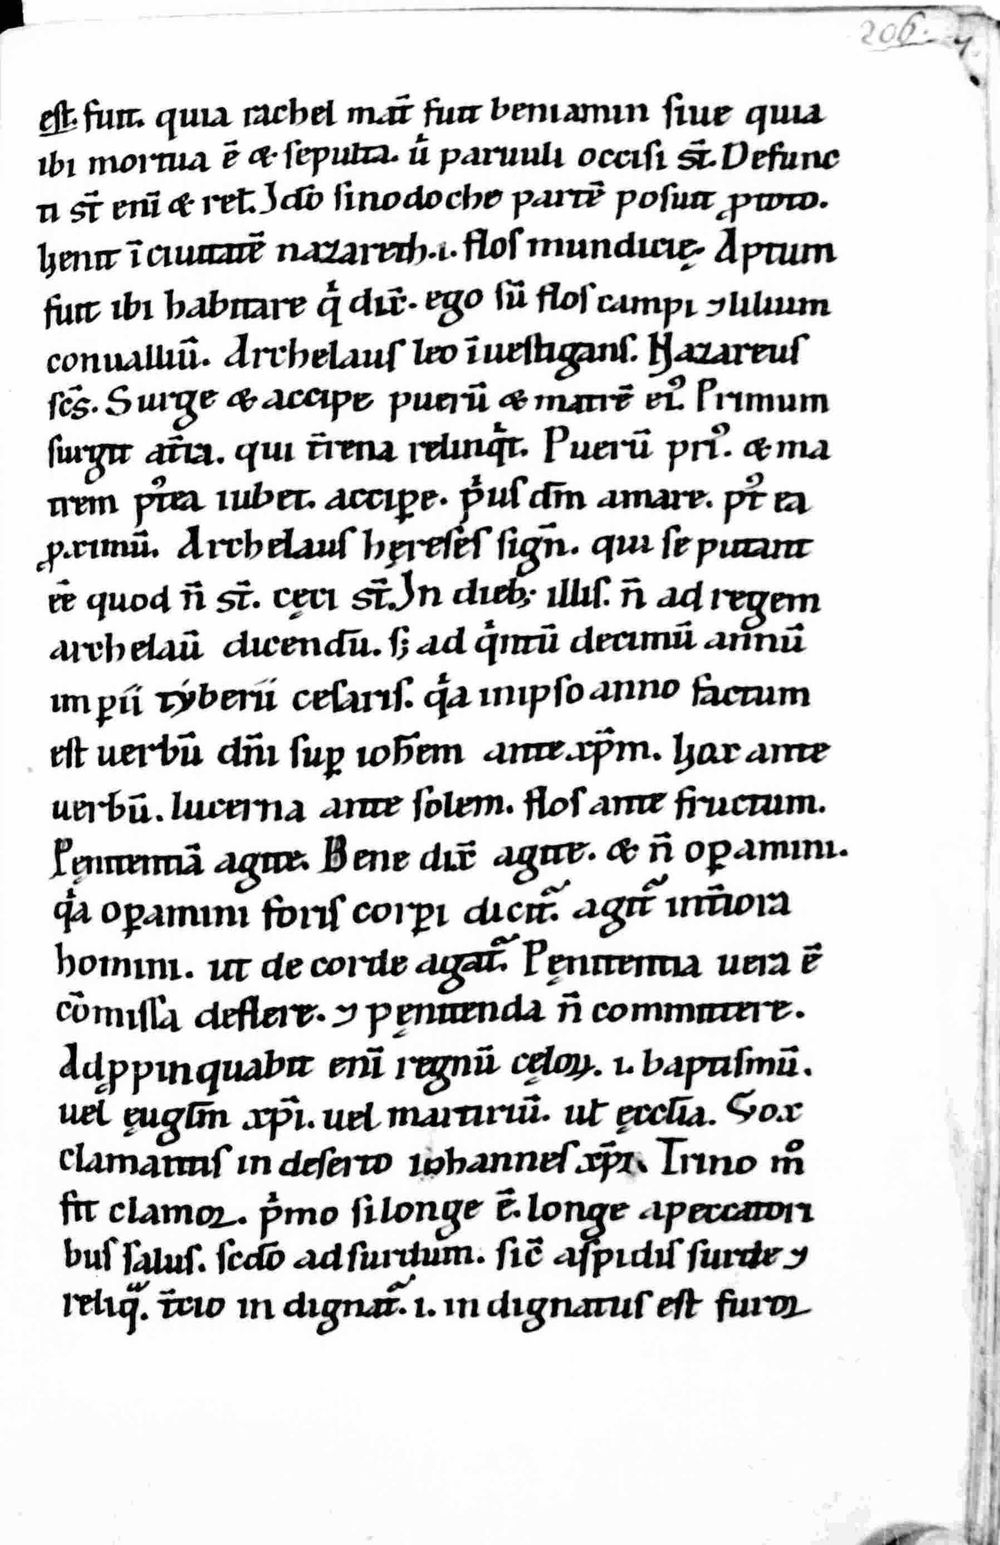 206. 7.
est. fuit. quia rachel mat̄ fuit beniamin siue quia
ibi mortua ē & sepulta. ů paruuli occisi st̄. Defunc
ti st̄ eni̅ & ret. Ido̅ sinodoche parte̅ posuit ꝓ toto.
henit i̅ ciuitate̅ nazareth .i. flos mundicię. Aptum
fuit ibi habitare qͥ dix̅. ego su̅ flos campi ⁊ lilium
conualliu̅. Archelaus leo i̅uestigans. Nazareus
sc̅s. Surge & accipe pueru̅ & matre̅ eiꝰ. Primum
surgit ai̅a. qui t̅rena relinqͥt. Pueru̅ priꝰ. & ma
trem pꝰtea iubet. accipe. pͥus dm̅ amare. pꝰt ea
ꝓximu̅. Archelaus hęreses sign̅. qui se putant
ee̅ quod n̅ st̅. cęci st̅. In dieb; illis. n̅ ad regem
archelau̅ dicendu̅. s; ad qͥntu̅ decimu̅ annu̅
imꝑii tyberii cesaris. qͥa in ipso anno factum
est uerbu̅ dn̅i suꝑ ioh̅em ante xp̅m. hox ante
uerbu̅. lucerna ante solem. flos ante fructum.
Pęnitentia̅ agite. Bene dix̅ agite. & n̅ oꝑamini.
qͥa oꝑamini foris corꝑi dicit᷑. agit᷑ int̅iora
homini. ut de corde agat᷑. Pęnitentia uera ē
co̅missa deflere. ⁊ pęnitenda n̅ committere.
Adꝓpinquabit eni̅ regnu̅ cęloꝝ. .i. baptismu̅.
uel ęugl̅m xp̅i. uel martiriu̅. ut ęccl̅ia. Vox
clamantis in deserto iohannes xp̅i. Trino mͦ
fit clamoꝛ. pͥmo si longe ē. longe a peccatori
bus salus. sc̅do ad surdum. sic̅ aspidis surde ⁊
reliqͣ. t̅cio in dignat᷑. .i. in dignatus est furoꝛ